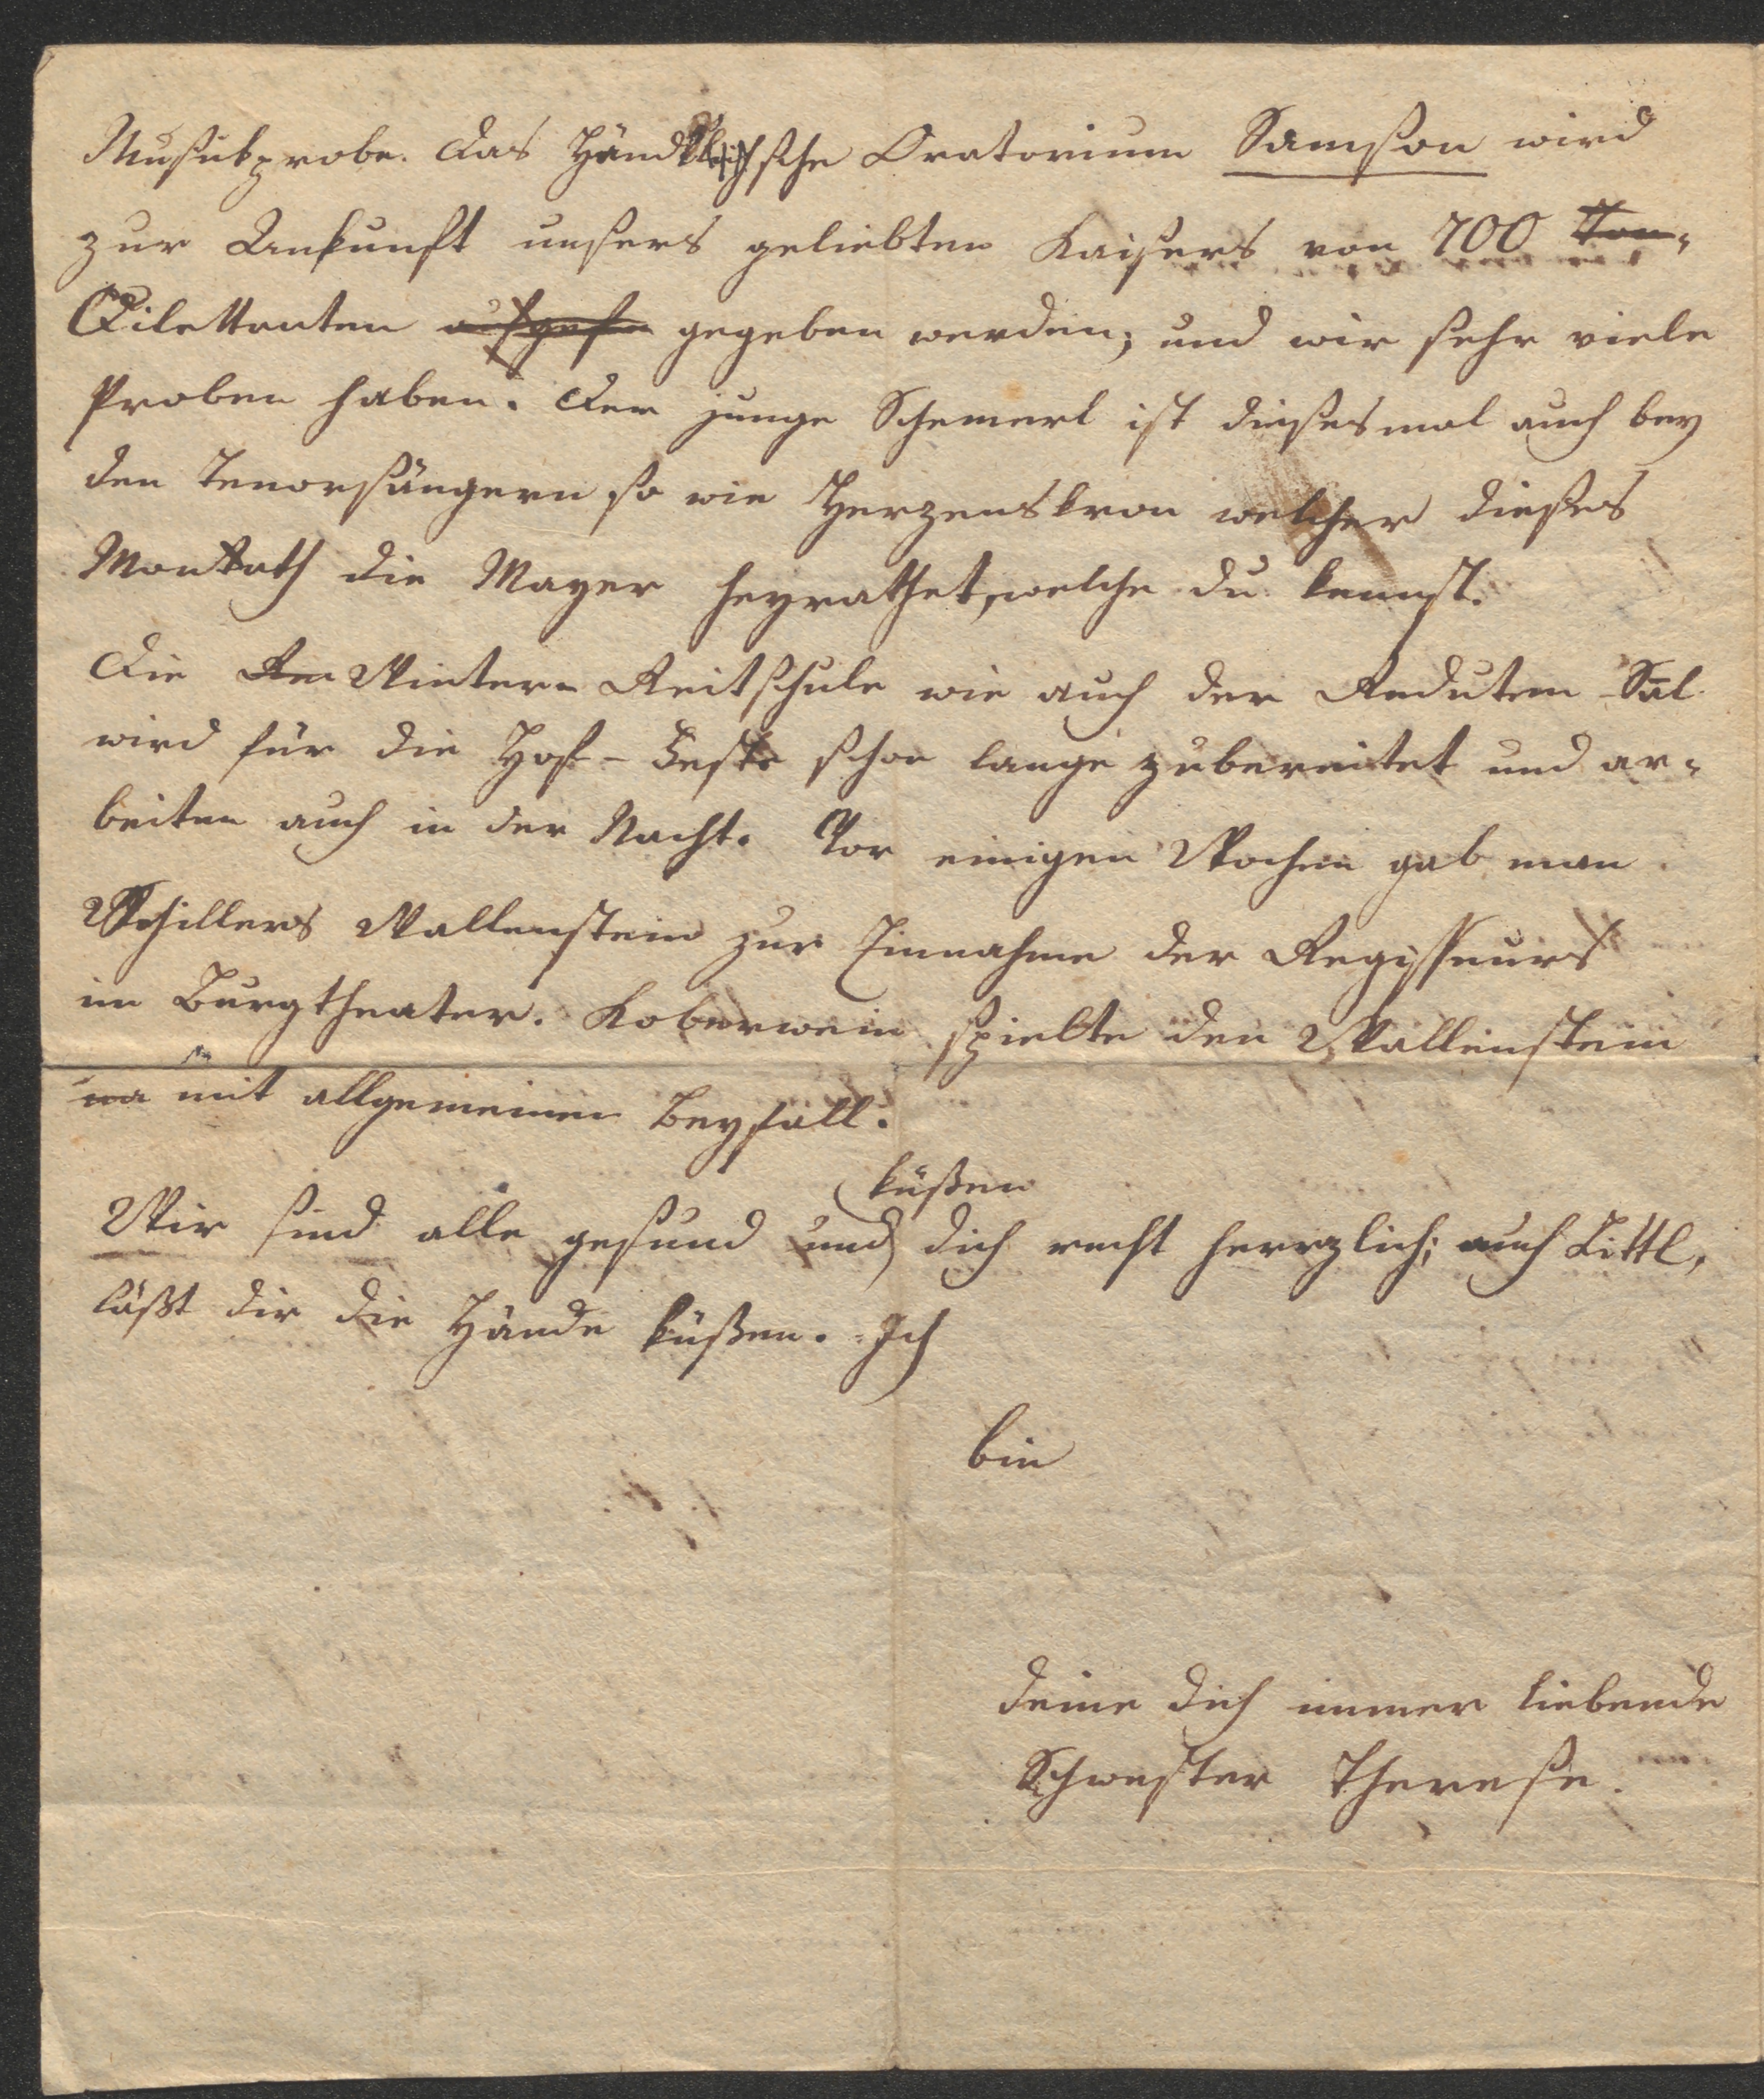 Musikprobe. Das Händlische Oratorium Samson wird
zur Ankunft unsers geliebten Kaisers von 700 Ton-
Dilettanten aufgefü gegeben werden; und wir sehr viele
Proben haben. Der junge Schemerl ist dießesmal auch bey
den Tenorsängern so wie Herzenskron welcher dießes
Monath die Mayer heyrathet, welche du kennst.
Die Winter-Reitschule wie auch der Reduten-Sal
wird für die Hof-Feste schon lange zubereitet und ar-
beiten auch in der Nacht. Vor einigen Wochen gab man
Schillers Wallenstein zur Einnahme der Regisseurs
im Burgtheater. Koberwein spielte den Wallenstein
mit allgemeinen Beyfall.
küßen
Wir sind alle gesund und dich recht herzlich; auch Littl,
läßt dir die Hände küßen. Ich
bin
deine dich immer liebende
Schwester Therese.